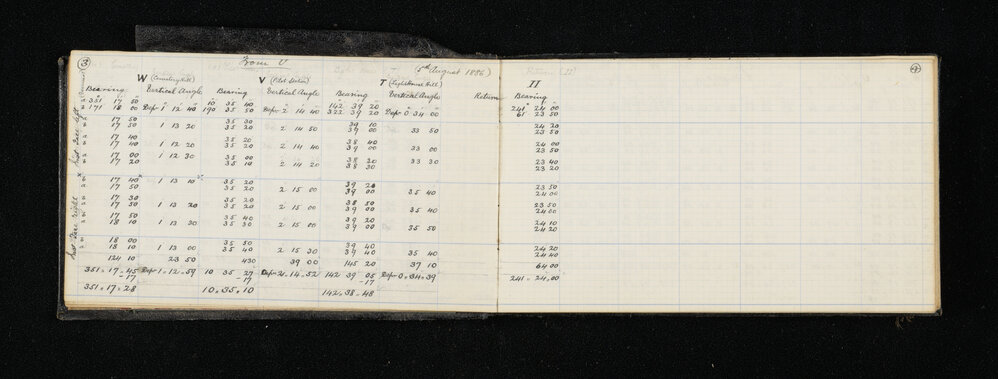 3 From U 5th August 1886 4
W (Cemetery Hill) V (Pilot Station) T (Lighthouse Hill) II
Bearing Vertical Angle Bearing Vertical Angle Bearing Vertical Angle Return Bearing
351 17 50 10 35 40 142 39 20 241 24 00
171 18 00 Depn 1 12 40 190 35 50 Depn 2 14 40 322 39 20 Depn 0 34 00 61 23 50
17 50 35 30 39 10 24 20
17 50 1 13 20 35 20 2 14 50 39 00 33 50 23 50
17 40 35 20 38 40 24 00
17 40 1 12 20 35 20 2 14 40 39 00 33 00 23 50
17 00 1 12 30 35 00 38 20 33 30 23 40
17 20 35 10 2 14 20 38 30 23 20
17 40 1 13 10 35 20 39 20 23 50
17 50 35 20 2 15 00 39 00 35 40 24 00
17 30 35 20 38 50 23 50
17 50 1 13 20 35 20 2 15 00 39 00 35 40 24 00
17 50 35 40 39 20 24 10
18 10 1 13 30 35 30 2 15 00 39 00 35 50 24 20
18 00 35 50 39 40 24 20
18 10 1 13 00 35 40 2 15 30 39 40 35 40 24 40
124 10 23 50 430 39 00 145 20 37 10 64 00
351 - 17 - 45 Depn 1 - 12 - 59 10 35 27 Depn 2 - 14 - 52 142 39 05 Depn 0 - 34 - 39 241 - 24 - 00
-17 -17 -17
351 - 17 = 28 10 - 35 = 10 142 - 38 - 48
Inst Face left
Inst Face right